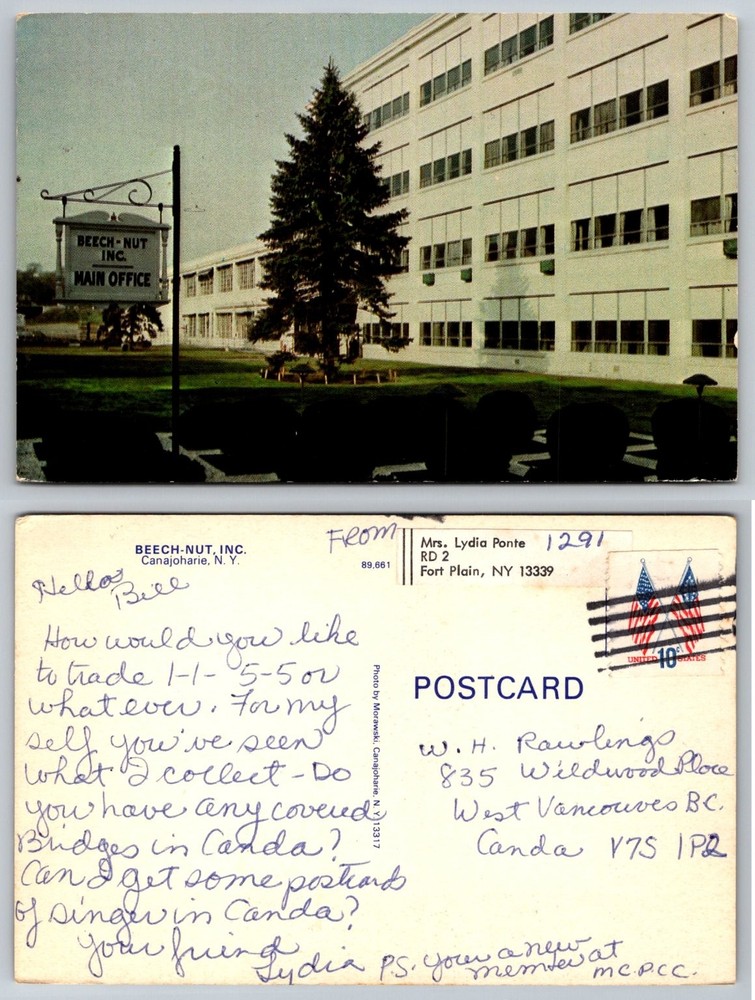 BEECH-NUT
INC.
MAIN OFFICE
BEECH-NUT, INC.
Canajoharie, N. Y.
89,661
FROM
Mrs. Lydia Ponte 1291
RD 2
Fort Plain, NY 13339
UNITED STATES
10c
Hello Bill
How would you like
to trade 1-1- 5-5 or
what ever. For my
self you've seen
what I collect - Do
you have any covered
Bridges in Canda?
Can I get some postcards
of singer in Canda?
Your friend
Lydia
Photo by Morawski, Canajoharie, N. Y. 13317
POSTCARD
W. H. Rawlings
835 Wildwood Place
West Vancouver BC.
Canda V7S 1P2
P.S. your a new
member at
M.C.P.C.C.